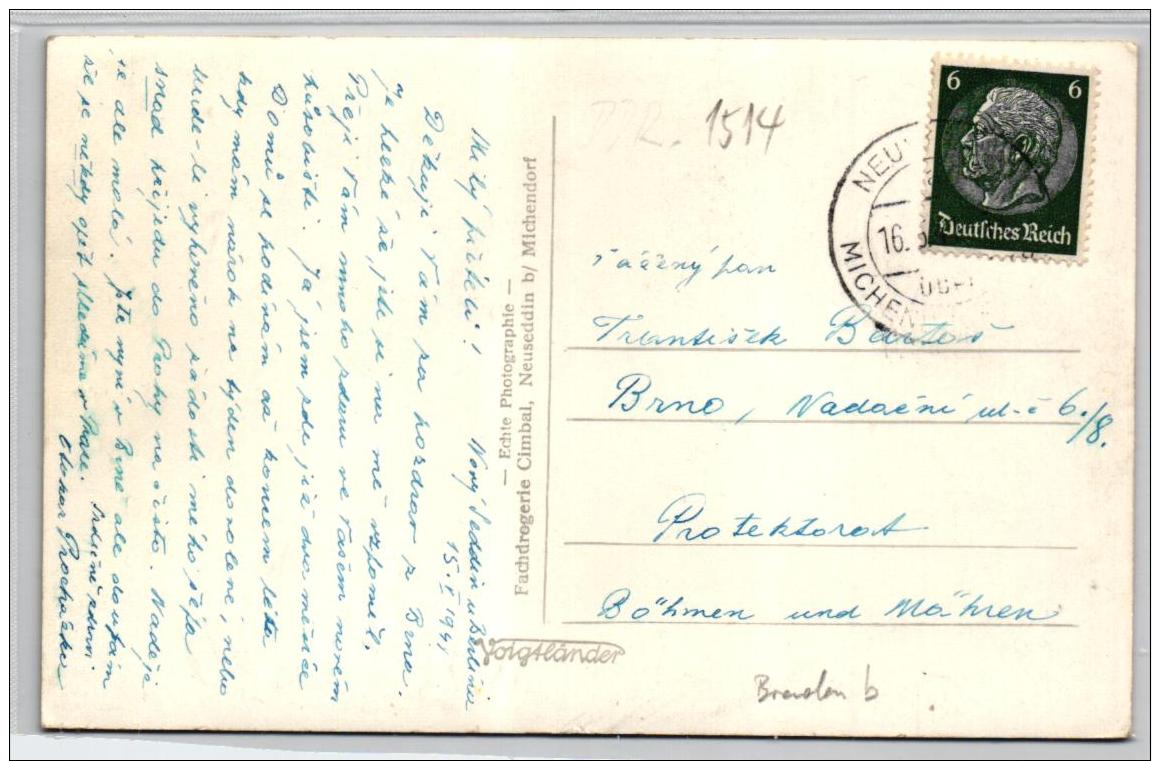 Milý příteli! Nový Seddin u Berlína
15.V.1941
Děkuji Vám za pozdrav z Brna.
Je hezké že jste si na mě vzpomněl.
Přeji Vám mnoho zdaru ve Vašem novém
působišti. Já jsem zde již dva měsíce
Domů se podívám až koncem léta
kdy mám nárok na týden dovolené, nebo
bude-li vyhověno žádosti mého šéfa
snad přijedu do Prahy na čisto. Naděje
je ale malá. Jste nyní v Brně ale doufám
že se někdy opět shledáme v Praze. Srdečně zdraví
Otakar Procházka
— Echte Photographie —
Fachdrogerie Cimbal, Neuseddin b/ Michendorf
Voigtländer
1514
6 6
Deutsches Reich
NEU
16.
MICHEN
ÜBER
Vážený pan
František Bartoš
Brno, Nadační ul. č 6./8.
Protektorat
Böhmen und Mähren